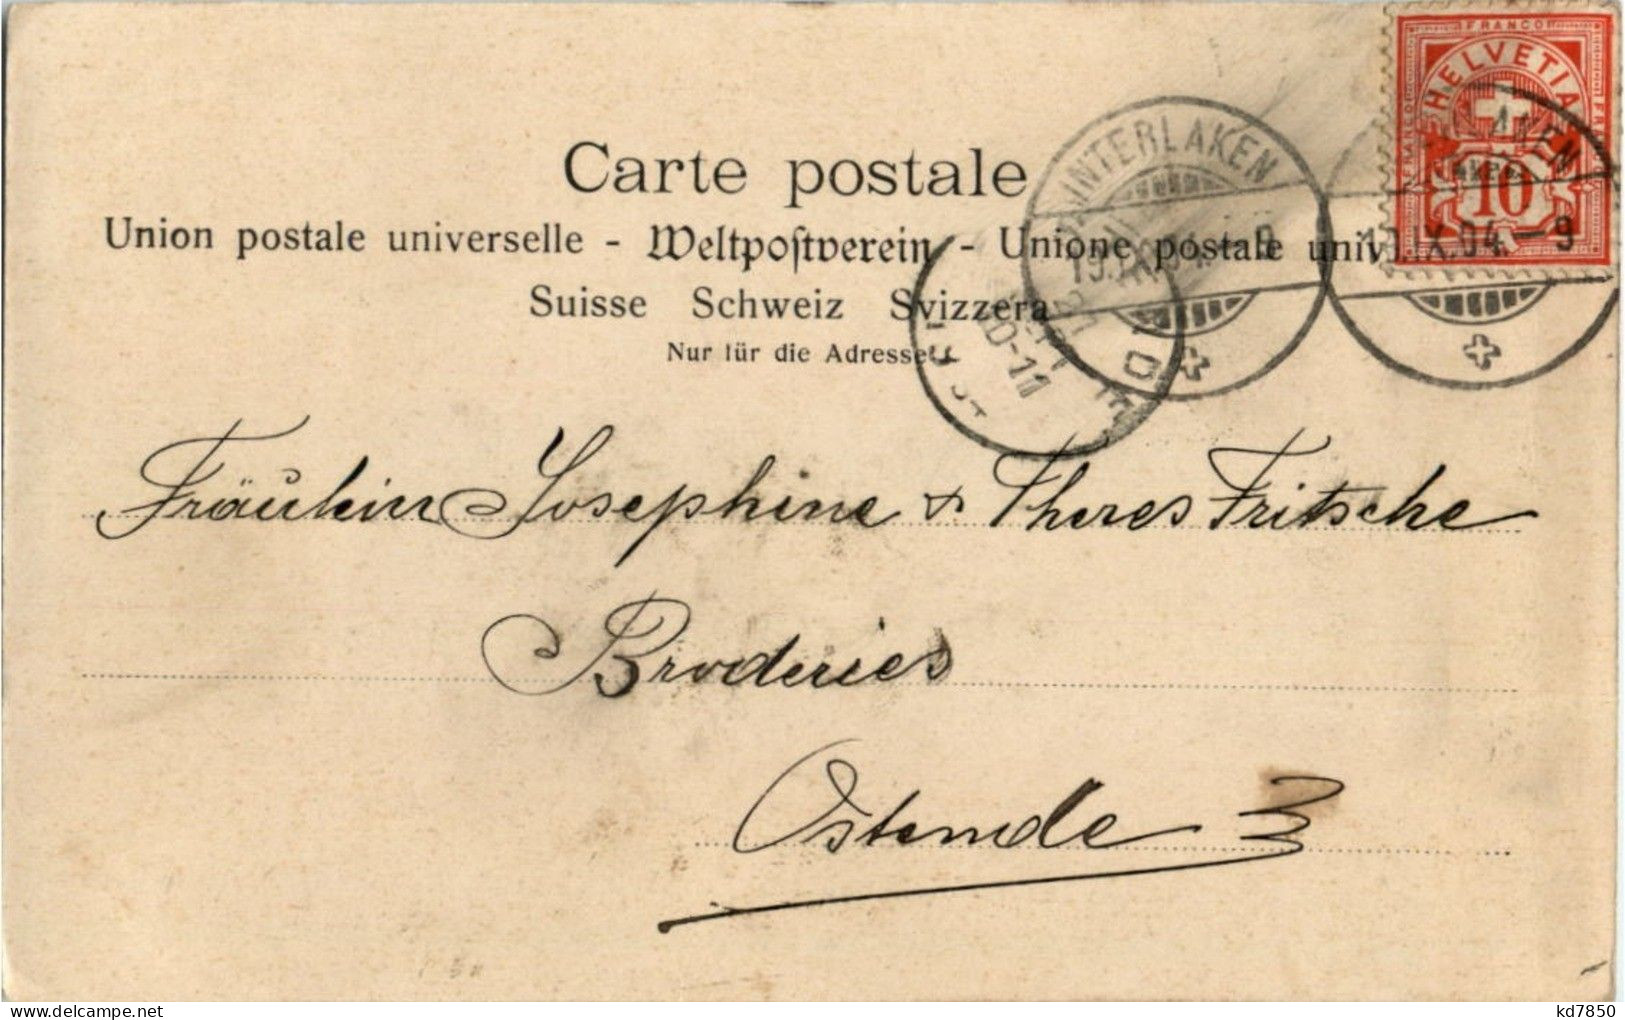 FRANCO
HELVETIA
10
INTERLAKEN
19.IX.04.-9
19.IX.04.-9
Carte postale
Union postale universelle - Weltpostverein - Unione postale univ
Suisse Schweiz Svizzera
Nur für die Adresse
Fräulein Josephine & Theres Fritsche
Broderies
Ostende
kd7850